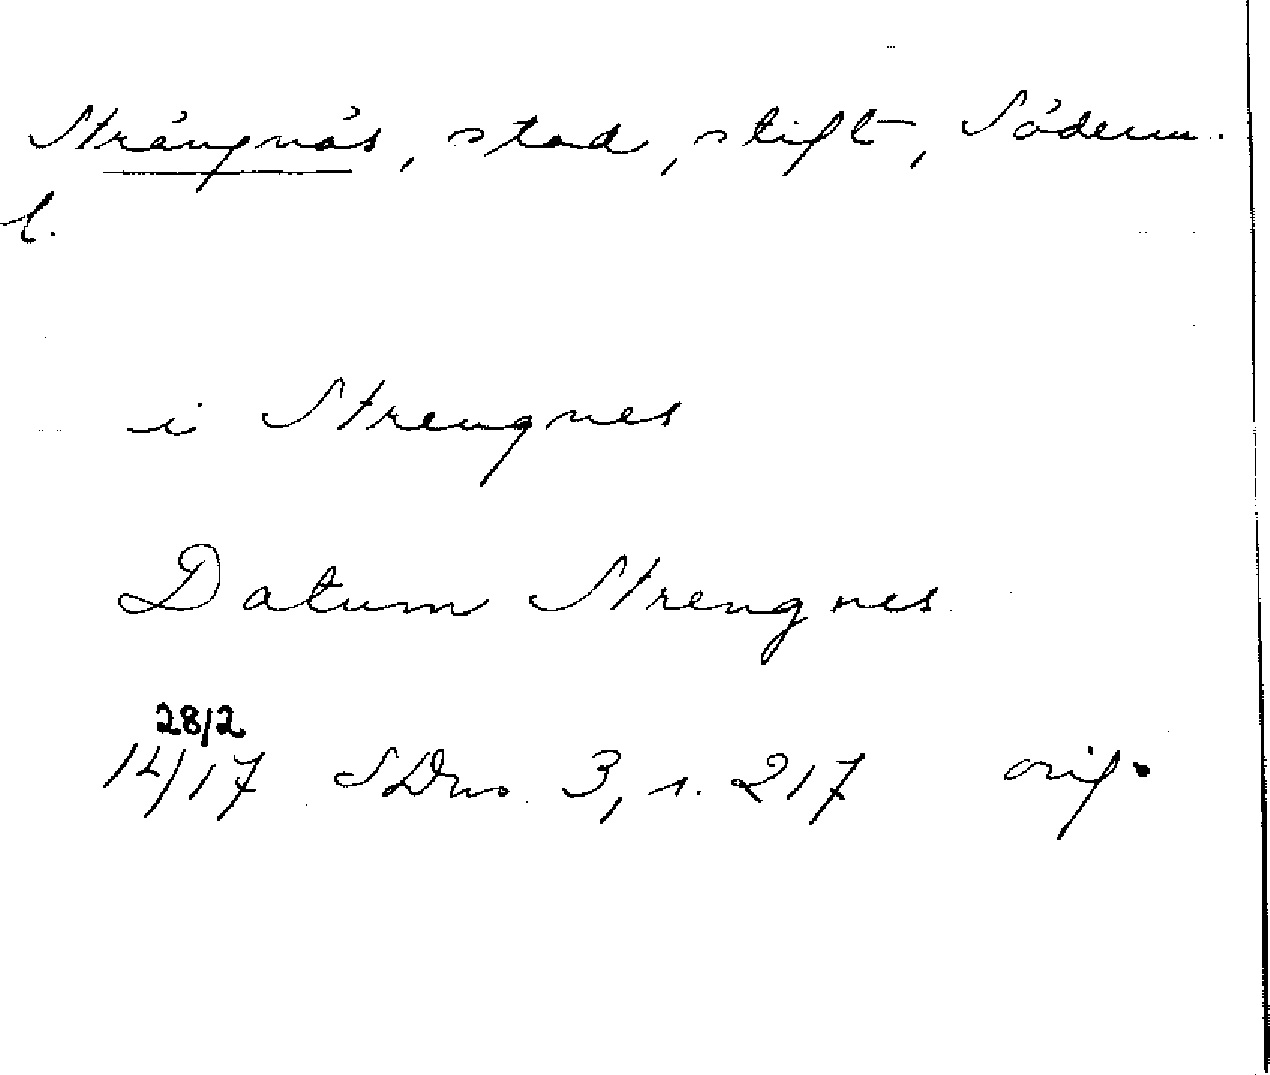 Strängnäs, stad, stift, Söderm.
l.
i Strengnes
Datum Strengnes
28/2
1417 SDns. 3, s. 217 orig.